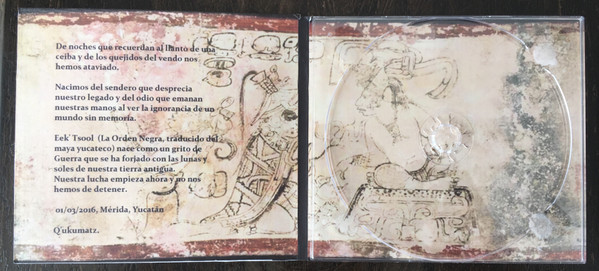 De noches que recuerdan al llanto de una
ceiba y de los quejidos del vendo nos
hemos ataviado.
Nacimos del sendero que desprecia
nuestro legado y del odio que emanan
nuestras manos al ver la ignorancia de un
mundo sin memoria.
Eek' Tsool (La Orden Negra, traducido del
maya yucateco) nace como un grito de
Guerra que se ha forjado con las lunas y
soles de nuestra tierra antigua.
Nuestra lucha empieza ahora y no nos
hemos de detener.
01/03/2016, Mérida, Yucatán
Q'ukumatz.